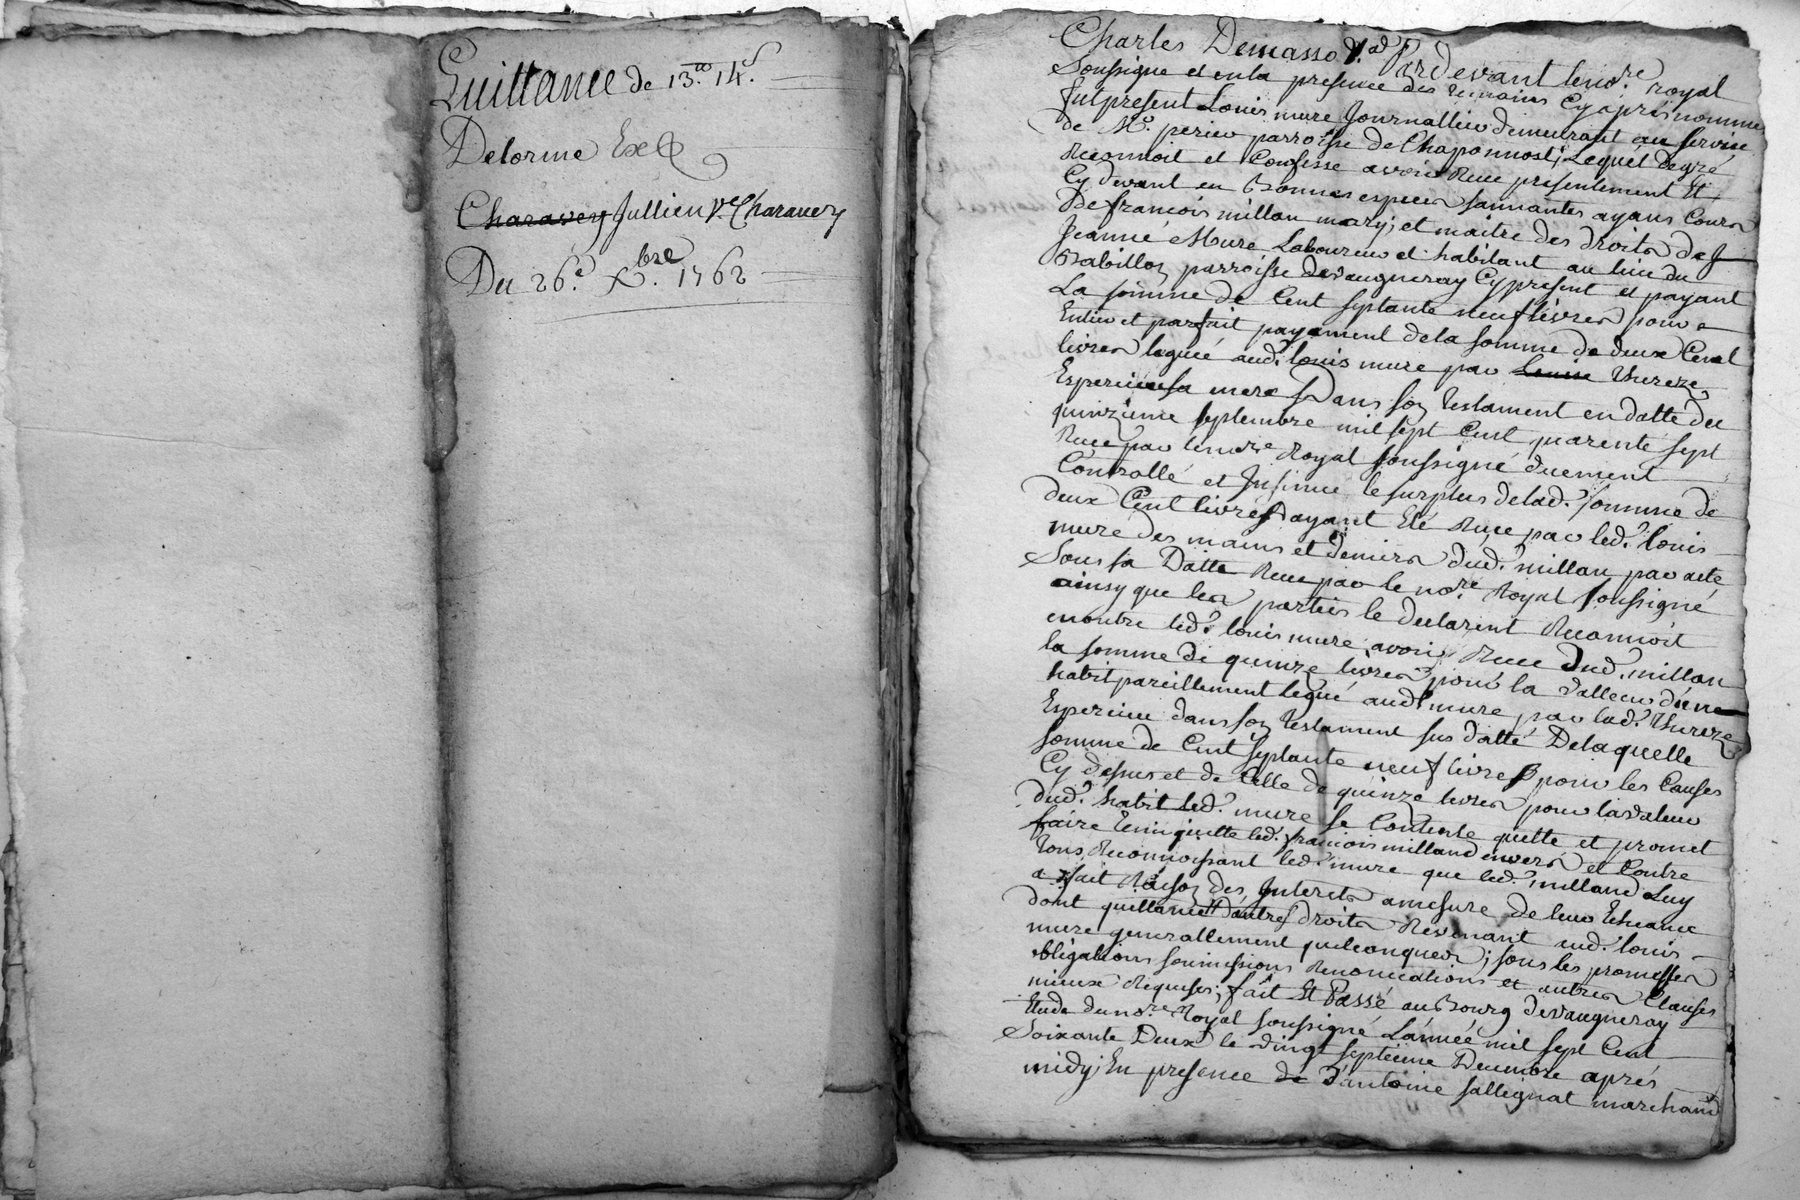 Quittance de 13.tt 14.s
Delorme Ex
Charavey Jullien ve. Charavey
Du 26.e Xbre. 1762
Charles Demasso Pardevant le nore. royal
Soussigné et en la presence des temoins Cyaprés nommés
fut present Louis mure Journallier demeurant au service
de Mr. perier parroisse de Chaponnost; Lequel de gré
Reconnoit et Confesse avoir Receu presentement Et
Cy devant en Bonnes especes sonnantes ayans Cours
De francois millan mary; et maitre des droits de
Jeanne Mure Laboureur et habitant au lieu du
parroisse de vaugneray Cy present et payant
La somme de Cent septante neuf livres pour
Entier et parfait payement de la somme de deux Cent
livres legueé aud. louis mure par Louise thereze
Esperieu sa mere Dans son testament en datte du
quinzieme septembre mil sept Cent quarente sept
Receu par le nore Royal soussigné duement
Controllé et Insinué le surplus de lad. somme de
deux Cent livres ayant Eté Receu par led. louis
mure des mains et deniers dud. millan par acte
Sous sa Datte Receu par le nore. Royal soussigné
ainsy que les parties le declarent Reconnoit
en outre led. louis mure avoir Receu dud. millan
la somme de quinze livres pour la valleur d'un
habit pareillement legué aud. mure par lad. thereze
Esperieu dans son testament sus datté De laquelle
somme de Cent septante neuf livres pour les Causes
Cy dessus et de Celle de quinze livres pour la valeur
dud. habit led. mure se Contente quitte et promet
faire tenir quitte led. francois milland envers et Contre
tous Reconnoissant led. mure que led. milland Luy
a fait Raison des Interets a mesure de leur Echeance
dont quittance D'autres droits Revenant aud. louis
mure generallement quelconques; sous les promesses
obligations soumissions Renonciations et autres Clauses
mieux Requises; fait Et Passé au Bourg de vaugneray
Etude du nore Royal soussigné L'année mil sept Cent
Soixante Deux le vingt septieme Decembre aprés
midy; En presence de D'antoine sallignat marchand